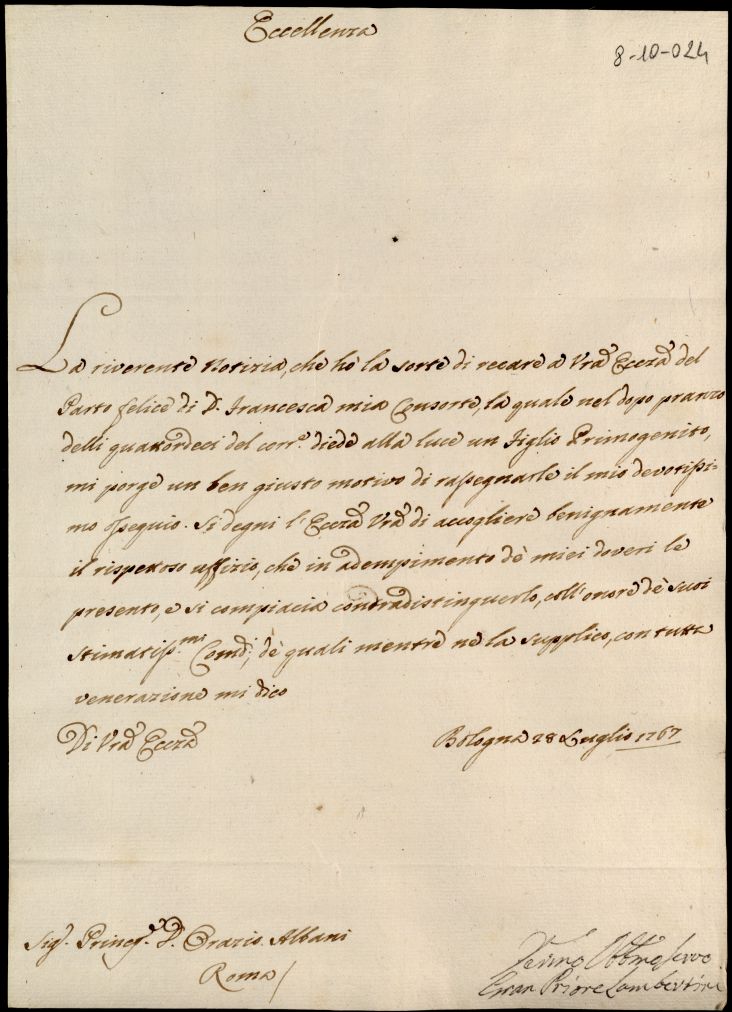 Eccellenza
8-10-024
La riverente Notizia, che hò la sorte di recare a Vrã Ecczã del
Parto felice di D. Francesca mia Consorte, la quale nel dopo pranzo
delli quattordeci del corre. diede alla luce un Figlio Primogenito,
mi porge un ben giusto motivo di rassegnarle il mio devotissi-
mo ossequio. Si degni l'Ecczã Vrã di accogliere benignamente
il rispettoso uffizio, che in adempimento dè miei doveri le
presento, e si compiacia contradistinguerlo, coll'onore dè suoi
stimatiss.mi Comdi, dè quali mentre ne la supplico, con tutta
venerazione mi dico
Di Vrã Ecczã
Bologna 28 Luglio 1767
Sigr. Princpe. D. Orazio Albani
Roma
Obbmo Servo
Gran Priore Lambertini